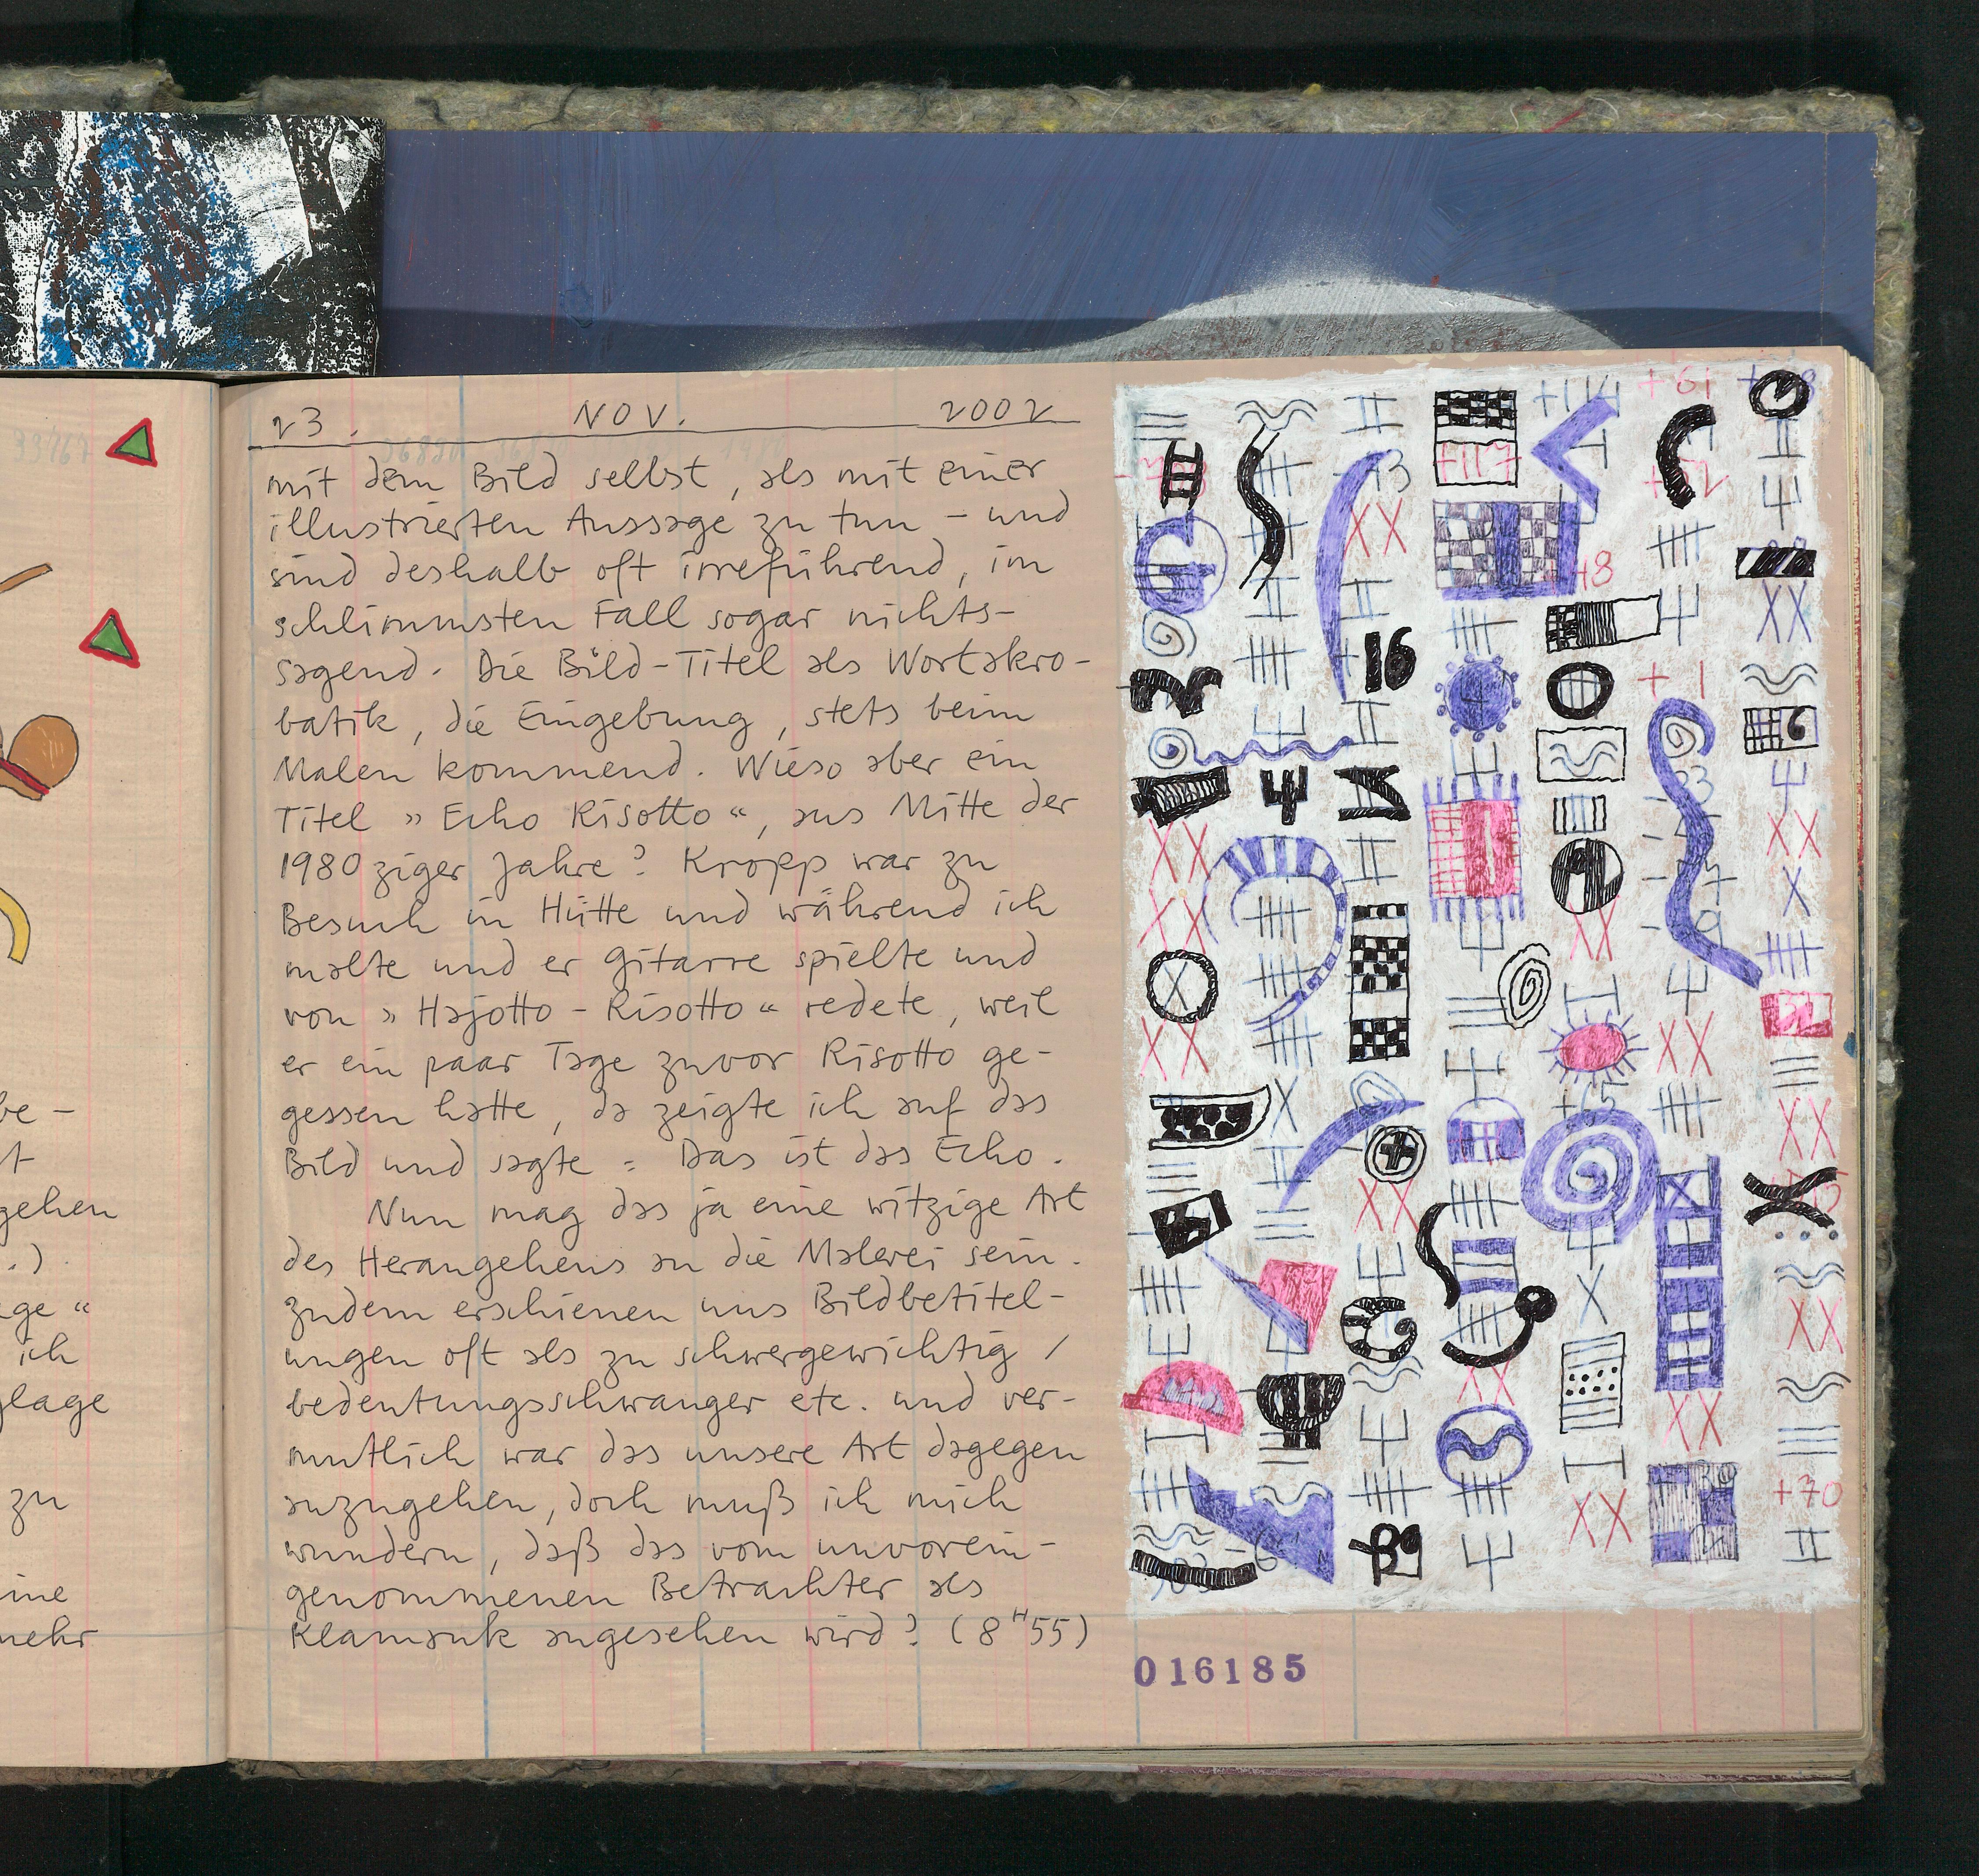 23. NOV. 2002
mit dem Bild selbst, als mit einer
illustrierten Aussage zu tun – und
sind deshalb oft irreführend, im
schlimmsten Fall sogar nichts-
sagend. Die Bild-Titel als Wortakro-
batik, die Eingebung, stets beim
Malen kommend. Wieso aber ein
Titel » Echo Risotto “, aus Mitte der
1980ziger Jahre? Kropp war zu
Besuch in Hütte und während ich
malte und er Gitarre spielte und
von » Hajotto - Risotto “ redete, weil
er ein paar Tage zuvor Risotto ge-
gessen hatte, da zeigte ich auf das
Bild und sagte : Das ist das Echo.
Nun mag das ja eine witzige Art
des Herangehens an die Malerei sein.
zudem erschienen uns Bildbetitel-
ungen oft als zu schwergewichtig /
bedeutungsschwanger etc. und ver-
mutlich war das unsere Art dagegen
anzugehen, doch muß ich mich
wundern, daß das vom unvorein-
genommenen Betrachter als
Klamauk angesehen wird? (8H55)
be -
t
gehen
.)
age “
ich
glage
zu
ine
mehr
+114
+61
+117
16
6
+1
+15
32
+70
016185